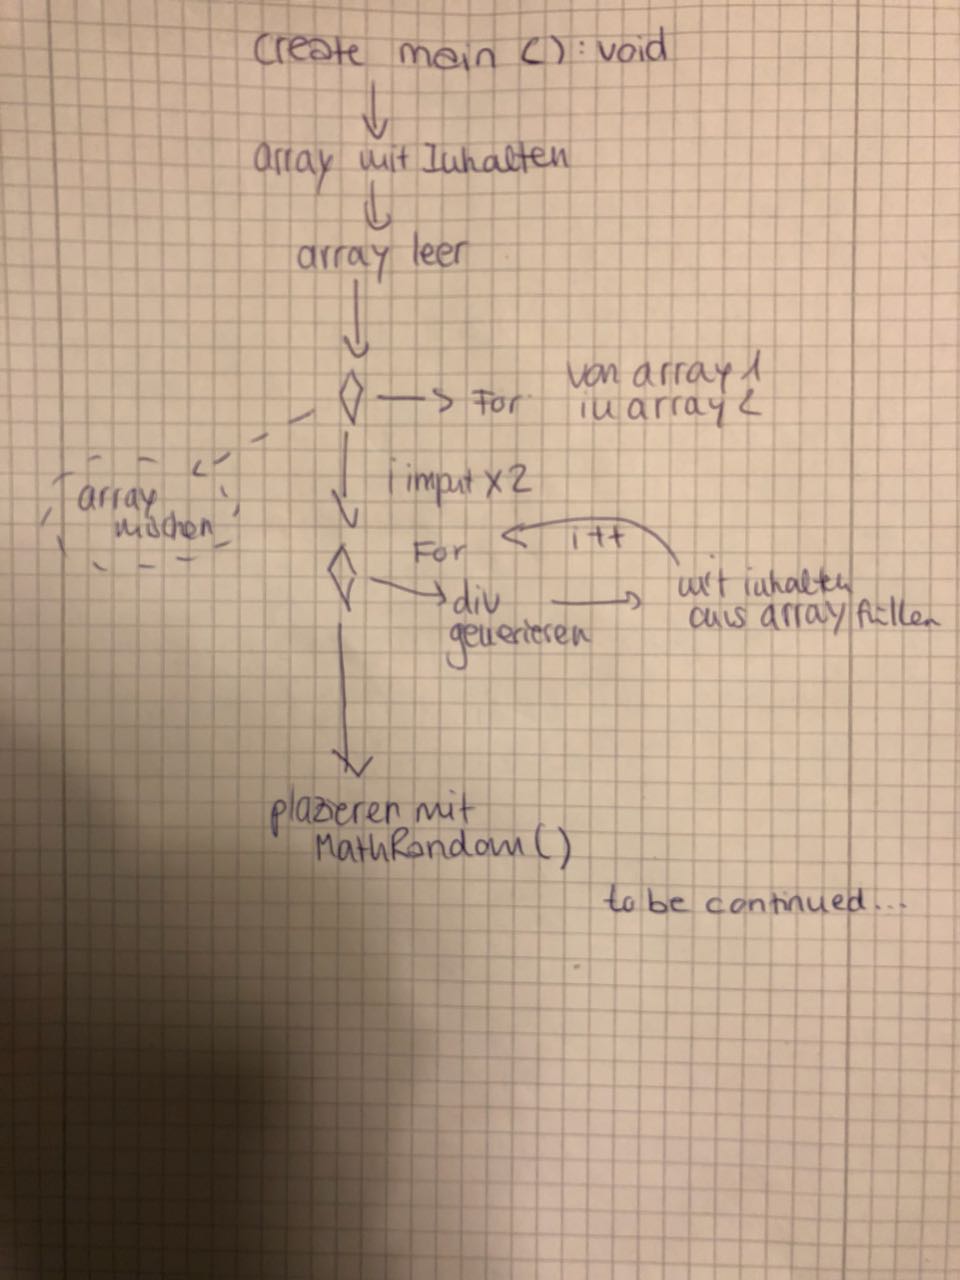 create main (): void
array mit Inhalten
array leer
von array 1
For in array 2
i imput x 2
array
mischen
For i++
div
generieren
mit inhalten
aus array füllen
plazieren mit
MathRandom()
to be continued...